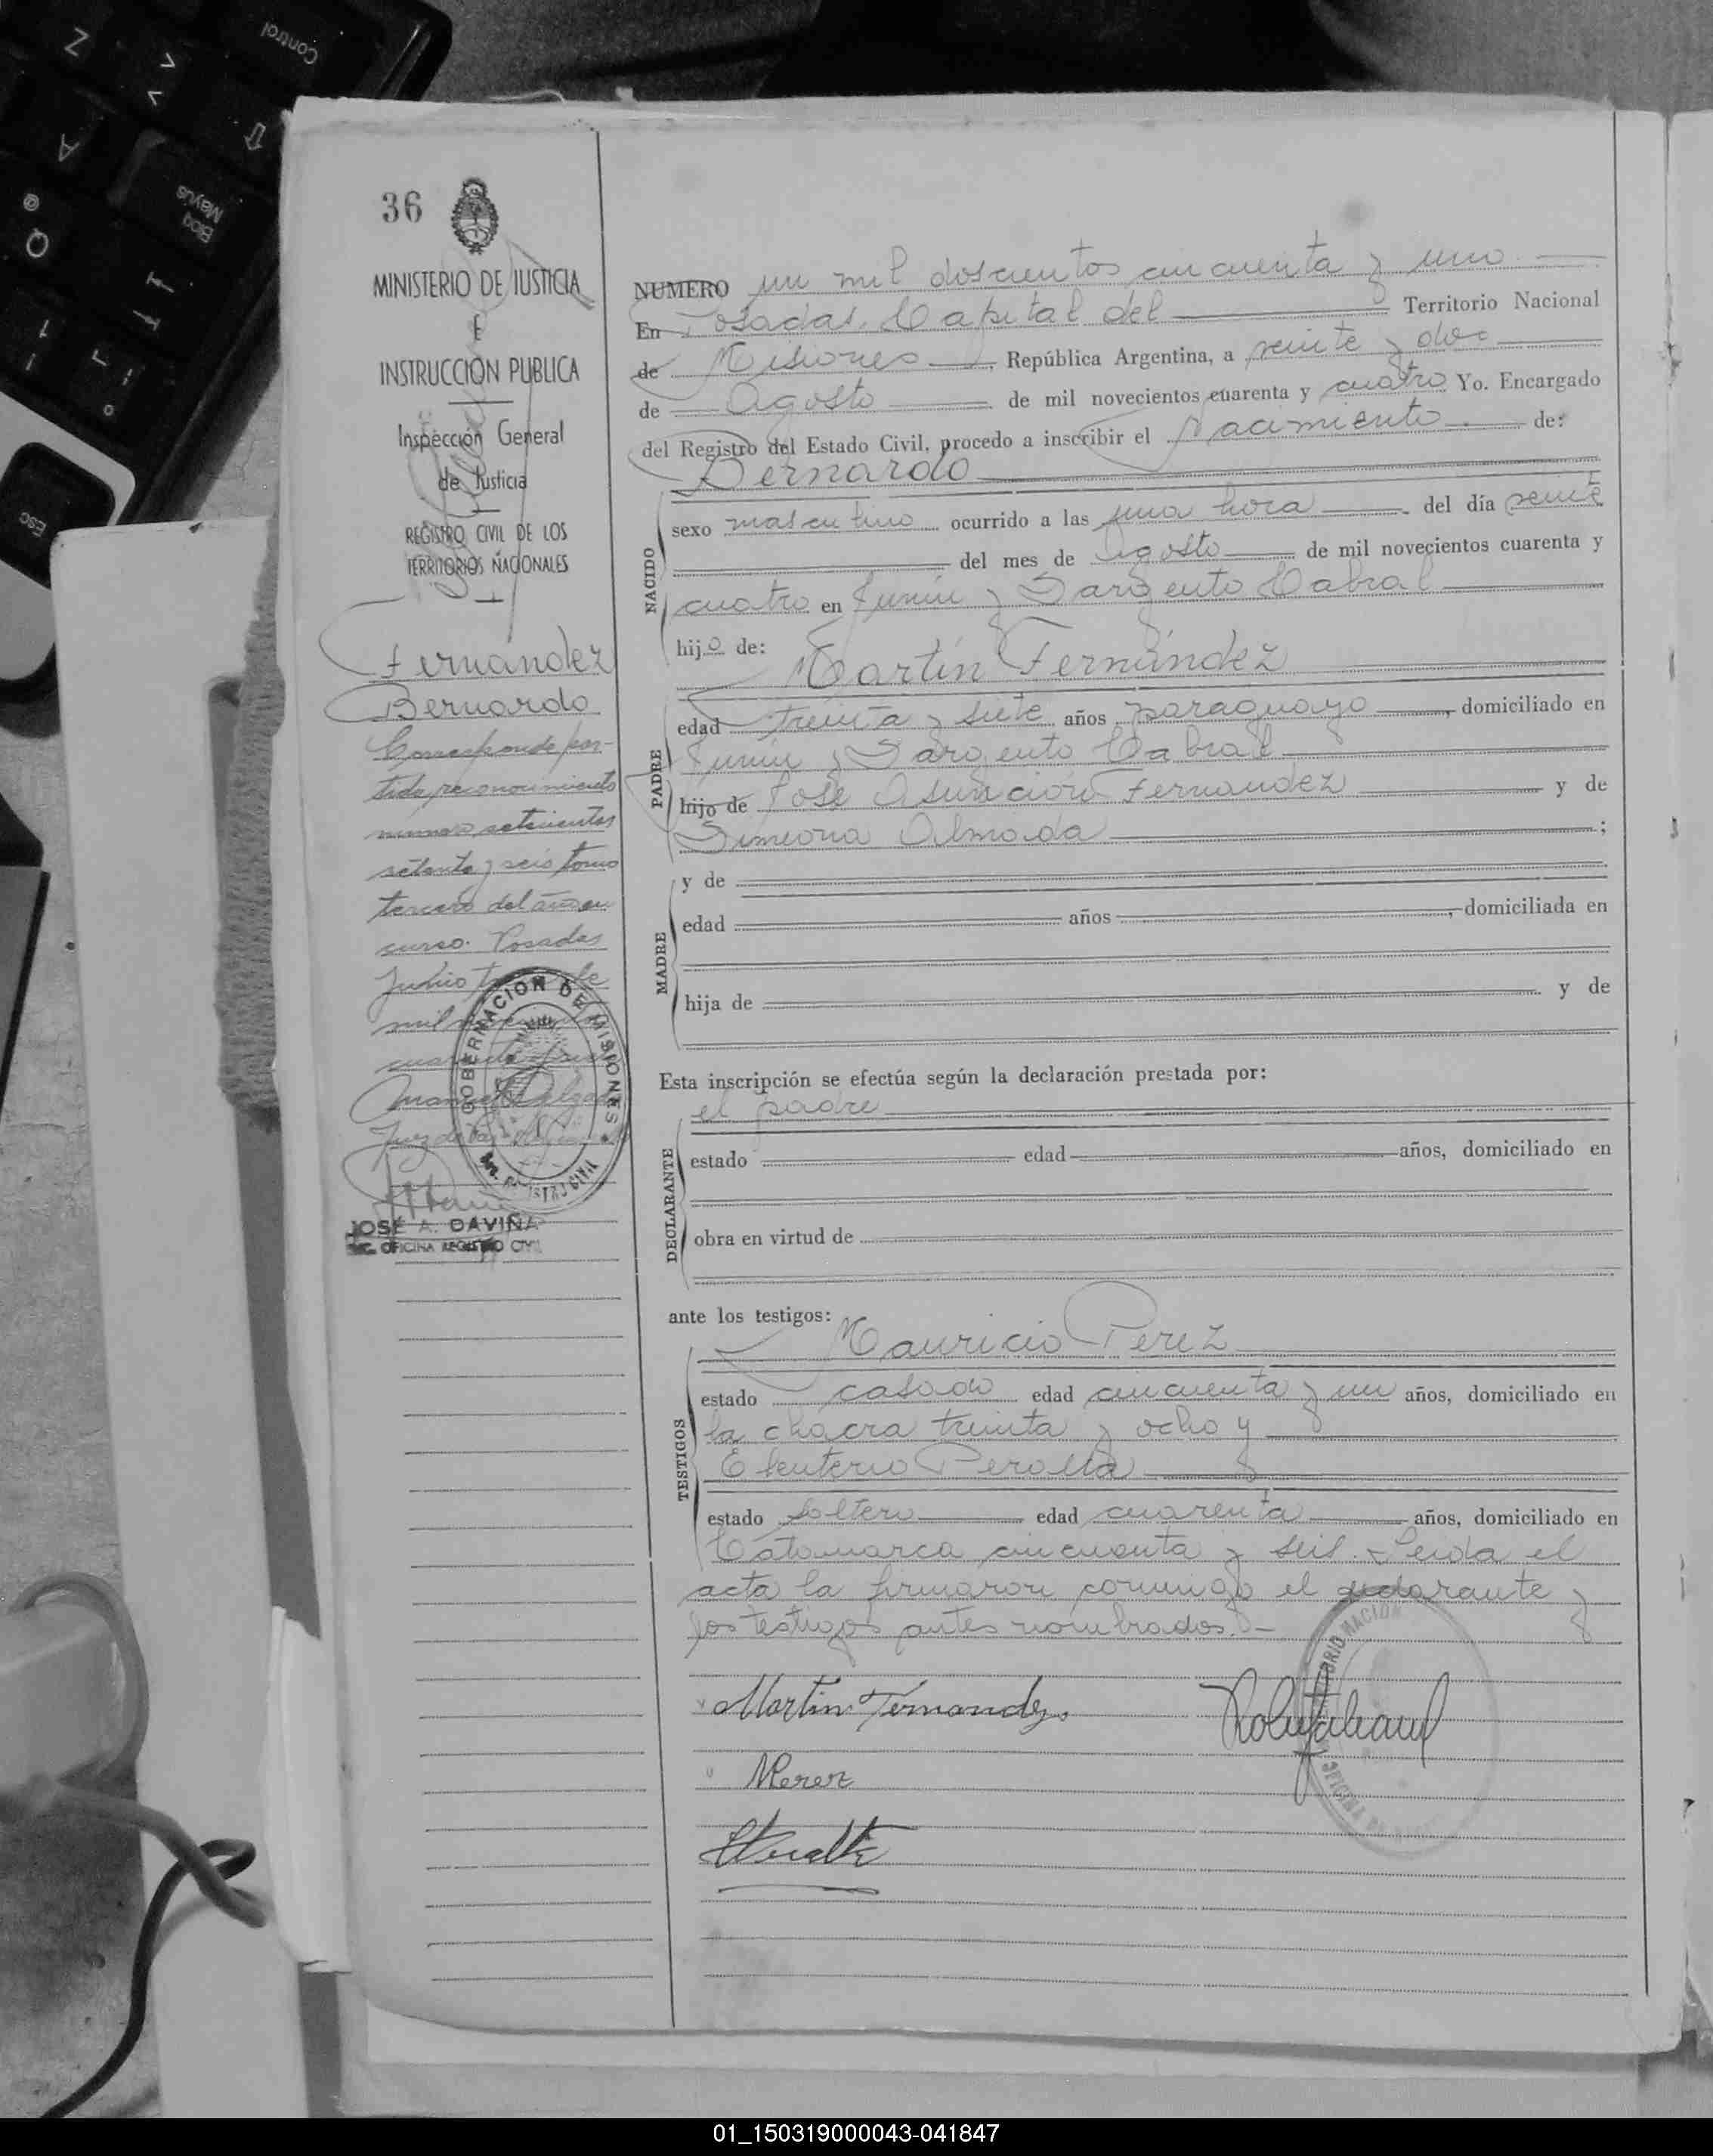 Control
Z
< >
A
Bloq Mayús
@
Q
1
Esc
36
MINISTERIO DE JUSTICIA
E
INSTRUCCIÓN PUBLICA
Inspección General
de Justicia
REGISTRO CIVIL DE LOS
TERRITORIOS NACIONALES
Fernández
Bernardo
Corresponde par-
tida reconocimiento
número setecientos
setenta y seis tomo
tercero del año en
curso. Posadas
Junio de
mil
Manuel Delgado
Juez de Paz
GOBERNACION DE MISIONES
REGISTRO CIVIL
JOSÉ A. DAVIÑA
ENC. OFICINA REGISTRO CIVIL
NUMERO un mil doscientos cincuenta y uno
En Posadas, Capital del Territorio Nacional
de Misiones, República Argentina, a veinte y dos
de Agosto de mil novecientos cuarenta y cuatro Yo. Encargado
del Registro del Estado Civil, procedo a inscribir el Nacimiento de:
Bernardo
NACIDO
sexo masculino ocurrido a las una hora del día veinte
del mes de Agosto de mil novecientos cuarenta y
cuatro en Junín y Sargento Cabral
hijo de:
Martín Fernández
PADRE
edad treinta y siete años paraguayo, domiciliado en
Junín y Sargento Cabral
hijo de José Asunción Fernandez y de
Simeona Almada;
MADRE
y de
edad años, domiciliada en
hija de y de
Esta inscripción se efectúa según la declaración prestada por:
el padre
DECLARANTE
estado edad años, domiciliado en
obra en virtud de
ante los testigos:
Mauricio Perez
TESTIGOS
estado casado edad cincuenta y un años, domiciliado en
la chacra treinta y ocho y
Eleuterio Peralta
estado soltero edad cuarenta años, domiciliado en
Catamarca cincuenta y seis. Leida el
acta la firmaron conmigo el declarante y
los testigos antes nombrados.-
Martin Fernandez
MPerez
EPeralta
01_150319000043-041847